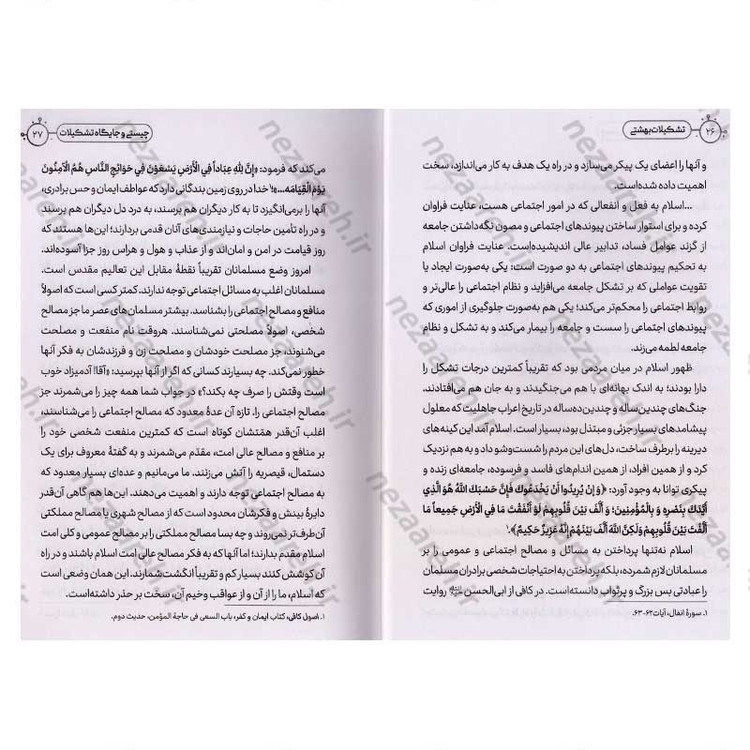 ۲۶ تشکیلات بهشتی
و آنها را اعضای یک پیکر می‌سازد و در راه یک هدف به کار می‌اندازد، سخت
اهمیت داده شده است.
...اسلام به فعل و انفعالی که در امور اجتماعی هست، عنایت فراوان
کرده و برای استوار ساختن پیوندهای اجتماعی و مصون نگه‌داشتن جامعه
از گزند عوامل فساد، تدابیر عالی اندیشیده‌است. عنایت فراوان اسلام
به تحکیم پیوندهای اجتماعی به دو صورت است: یکی به‌صورت ایجاد یا
تقویت عواملی که بر تشکل جامعه می‌افزاید و نظام اجتماعی را عالی‌تر و
روابط اجتماعی را محکم‌تر می‌کند؛ یکی هم به‌صورت جلوگیری از اموری که
پیوندهای اجتماعی را سست و جامعه را بیمار می‌کند و به تشکل و نظام
جامعه لطمه می‌زند.
ظهور اسلام در میان مردمی بود که تقریباً کمترین درجات تشکل را
دارا بودند؛ به اندک بهانه‌ای با هم می‌جنگیدند و به جان هم می‌افتادند.
جنگ‌های چندین‌ساله و چندین‌ده‌ساله در تاریخ اعراب جاهلیت که معلول
پیشامدهای بسیار جزئی و مبتذل بود، بسیار است. اسلام آمد این کینه‌های
دیرینه را برطرف ساخت، دل‌های این مردم را شست‌وشو داد و به هم نزدیک
کرد و از همین افراد، از همین اندام‌های فاسد و فرسوده، جامعه‌ای زنده و
پیکری توانا به وجود آورد: ﴿وَ إِنْ يُرِيدُوا أَنْ يَخْدَعُوكَ فَإِنَّ حَسْبَكَ اللهُ هُوَ الَّذِي
أَيَّدَكَ بِنَصْرِهِ وَ بِالْمُؤْمِنِينَ؛ وَ أَلَّفَ بَيْنَ قُلُوبِهِمْ لَوْ أَنْفَقْتَ مَا فِي الْأَرْضِ جَمِيعاً مَا
أَلَّفْتَ بَيْنَ قُلُوبِهِمْ وَلَكِنَّ اللهَ أَلَّفَ بَيْنَهُمْ إِنَّهُ عَزِيزٌ حَكِيمٌ﴾.۱
اسلام نه‌تنها پرداختن به مسائل و مصالح اجتماعی و عمومی را بر
مسلمانان لازم شمرده، بلکه پرداختن به احتیاجات شخصی برادران مسلمان
را عبادتی بس بزرگ و پرثواب دانسته است. در کافی از ابی‌الحسن روایت
۱. سورهٔ انفال، آیات۶۲-۶۳.
چیستی و جایگاه تشکیلات ۲۷
می‌کند که فرمود: «إِنَّ لِلَّهِ عِبَاداً فِي الْأَرْضِ يَسْعَوْنَ فِي حَوَائِجِ النَّاسِ هُمُ الْآمِنُونَ
يَوْمَ الْقِيَامَة...»؛۱ خدا در روی زمین بندگانی دارد که عواطف ایمان و حس برادری،
آنها را برمی‌انگیزد تا به کار دیگران هم برسند، به درد دل دیگران هم برسند
و در راه تأمین حاجات و نیازمندی‌های آنان قدمی بردارند؛ این‌ها هستند که
روز قیامت در امن و امان‌اند و از عذاب و هول و هراس روز جزا آسوده‌اند.
امروز وضع مسلمانان تقریباً نقطهٔ مقابل این تعالیم مقدس است.
مسلمانان اغلب به مسائل اجتماعی توجه ندارند. کمتر کسی است که اصولاً
منافع و مصالح اجتماعی را بشناسد. بیشتر مسلمان‌های عصر ما جز مصالح
شخصی، اصولاً مصلحتی نمی‌شناسند. هروقت نام منفعت و مصلحت
می‌شنوند، جز مصلحت خودشان و مصلحت زن و فرزندشان به فکر آنها
خطور نمی‌کند. چه بسیارند کسانی که اگر از آنها بپرسید: «آقا! آدمیزاد خوب
است وقتش را صرف چه بکند؟» در جواب شما همه چیز را می‌شمرند جز
مصالح اجتماعی را. تازه آن عدهٔ معدود که مصالح اجتماعی را می‌شناسند،
اغلب آن‌قدر همتشان کوتاه است که کمترین منفعت شخصی خود را
بر منافع و مصالح عالی امت، مقدّم می‌شمرند و به گفتهٔ معروف برای یک
دستمال، قیصریه را آتش می‌زنند. ما می‌مانیم و عده‌ای بسیار معدود که
به مصالح اجتماعی توجه دارند و اهمیت می‌دهند. این‌ها هم گاهی آن‌قدر
دایرهٔ بینش و فکرشان محدود است که از مصالح شهری یا مصالح مملکتی
آن‌طرف‌تر نمی‌روند و چه بسا مصالح مملکتی را بر مصالح عمومی و کلی امت
اسلام مقدم بدارند؛ اما آنها که به فکر مصالح عالی امت اسلام باشند و در راه
آن کوشش کنند بسیار کم و تقریباً انگشت‌شمارند. این همان وضعی است
که اسلام، ما را از آن و از عواقب وخیم آن، سخت بر حذر داشته است.
۱. اصول کافی، کتاب ایمان و کفر، باب السعی فی حاجة المؤمن، حدیث دوم.
nezaareh.ir